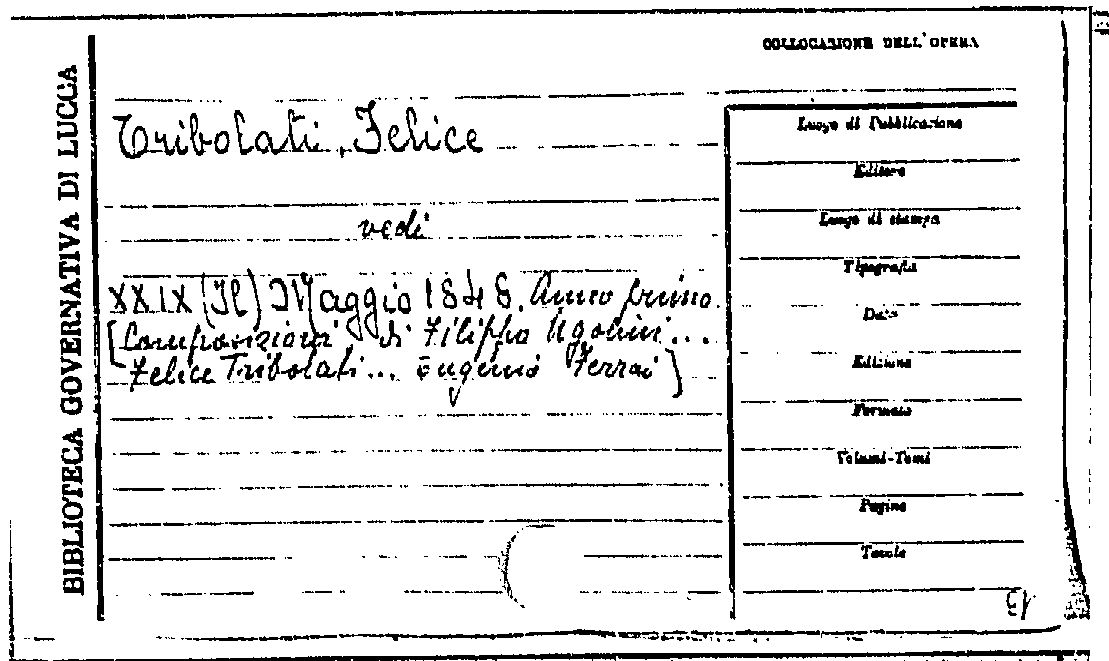 BIBLIOTECA GOVERNATIVA DI LUCCA
COLLOCAZIONE DELL'OPERA
Tribolati, Felice
vedi
XXIX (Il) Maggio 1848. Anno primo.
[Composizioni di Filippo Ugolini...
Felice Tribolati... Eugenio Ferrai]
Luogo di Pubblicazione
Editore
Luogo di stampa
Tipografia
Data
Edizione
Formato
Volumi-Tomi
Pagine
Tavole